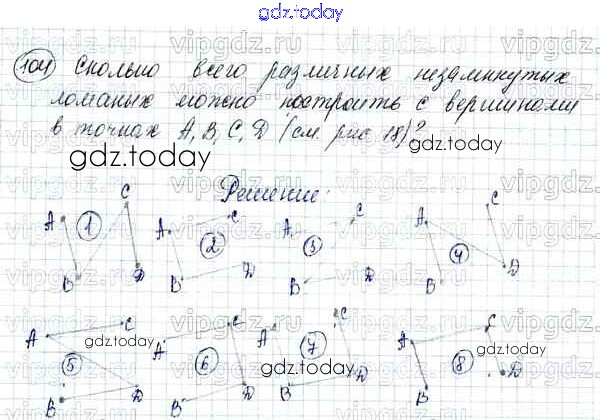 gdz.today
104 Сколько всего различных незамкнутых
ломаных можно построить с вершинами
в точках A, B, C, D (см. рис 18)?
gdz.today
gdz.today
Решение:
A C B D 1
A C B D 2
A C B D 3
A C B D 4
A C B D 5
A C B D 6
A C B D 7
A C B D 8
gdz.today
gdz.today
gdz.today
gdz.today